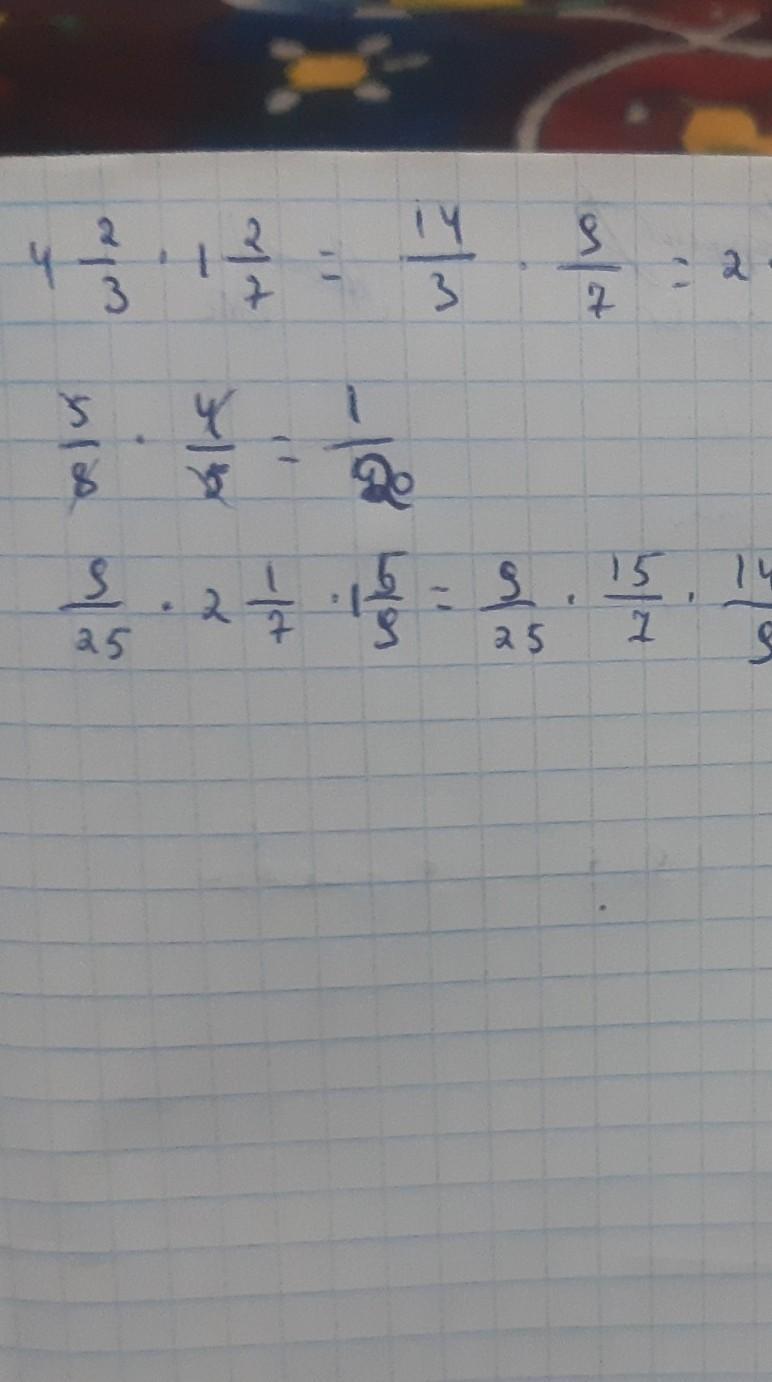 4 2/3 · 1 2/7 = 14/3 · 9/7 = 2 ·
5/8 · 4/5 = 1/2
9/25 · 2 1/7 · 1 5/9 = 9/25 · 15/7 · 14/9